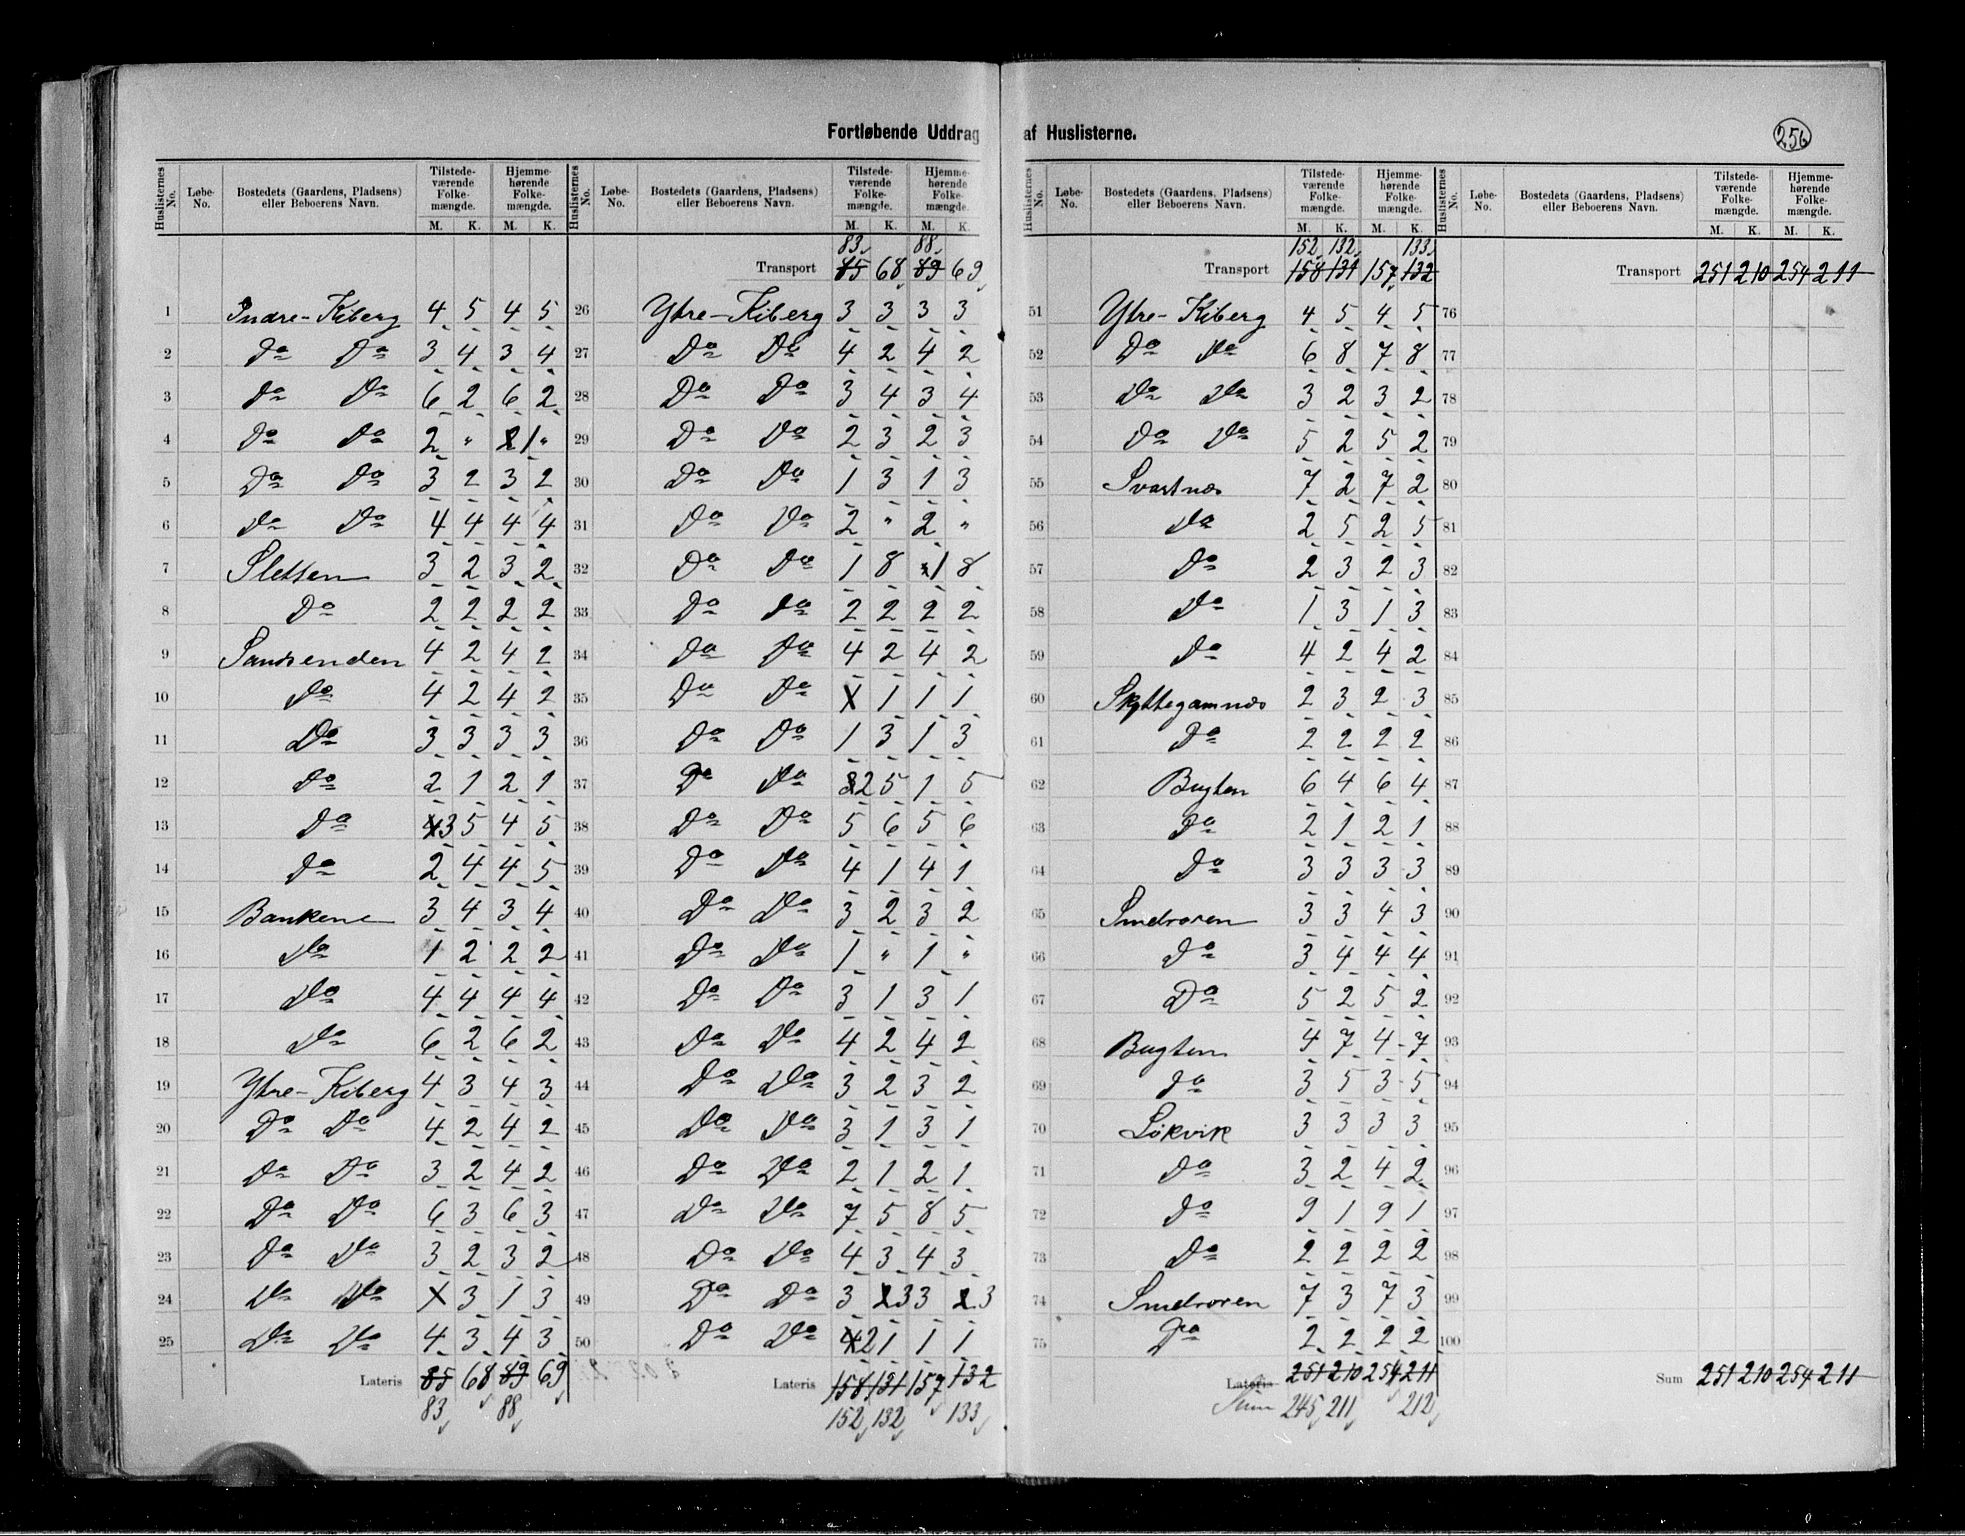 Fortløbende Uddrag af Huslisterne.
256
Huslisternes No. Løbe-No. Bostedets (Gaardens, Pladsens) eller Beboerens Navn. Tilstedeværende Folkemængde. M. K. Hjemmehørende Folkemængde. M. K.
1 Indre-Kiberg 4 5 4 5
2 Do Do 3 4 3 4
3 Do Do 6 2 6 2
4 Do Do 2 " 2 1 "
5 Do Do 3 2 3 2
6 Do Do 4 4 4 4
7 Sletten 3 2 3 2
8 Do 2 2 2 2
9 Sandsenden 4 2 4 2
10 Do 4 2 4 2
11 Do 3 3 3 3
12 Do 2 1 2 1
13 Do 4 3 5 4 5
14 Do 2 4 4 5
15 Bankene 3 4 3 4
16 Do 1 2 2 2
17 Do 4 4 4 4
18 Do 6 2 6 2
19 Ytre-Kiberg 4 3 4 3
20 Do Do 4 2 4 2
21 Do Do 3 2 4 2
22 Do Do 6 3 6 3
23 Do Do 3 2 3 2
24 Do Do X 3 1 3
25 Do Do 4 3 4 3
Lateris 85 68 89 69
83 88
Huslisternes No. Løbe-No. Bostedets (Gaardens, Pladsens) eller Beboerens Navn. Tilstedeværende Folkemængde. M. K. Hjemmehørende Folkemængde. M. K.
83 88
Transport 85 68 89 69
26 Ytre-Kiberg 3 3 3 3
27 Do Do 4 2 4 2
28 Do Do 3 4 3 4
29 Do Do 2 3 2 3
30 Do Do 1 3 1 3
31 Do Do 2 " 2 "
32 Do Do 1 8 1 8
33 Do Do 2 2 2 2
34 Do Do 4 2 4 2
35 Do Do X 1 1 1
36 Do Do 1 3 1 3
37 Do Do 2 5 1 5
38 Do Do 5 6 5 6
39 Do Do 4 1 4 1
40 Do Do 3 2 3 2
41 Do Do 1 " 1 "
42 Do Do 3 1 3 1
43 Do Do 4 2 4 2
44 Do Do 3 2 3 2
45 Do Do 3 1 3 1
46 Do Do 2 1 2 1
47 Do Do 7 5 8 5
48 Do Do 4 3 4 3
49 Do Do 3 2 3 3 2 3
50 Do Do 4 2 1 1 1
Lateris 158 131 157 132
152 132 133
Huslisternes No. Løbe-No. Bostedets (Gaardens, Pladsens) eller Beboerens Navn. Tilstedeværende Folkemængde. M. K. Hjemmehørende Folkemængde. M. K.
152 132 133
Transport 158 131 157 132
51 Ytre-Kiberg 4 5 4 5
52 Do Do 6 8 7 8
53 Do Do 3 2 3 2
54 Do Do 5 2 5 2
55 Svartnæs 7 2 7 2
56 Do 2 5 2 5
57 Do 2 3 2 3
58 Do 1 3 1 3
59 Do 4 2 4 2
60 Skyttegamnæs 2 3 2 3
61 Do 2 2 2 2
62 Bugten 6 4 6 4
63 Do 2 1 2 1
64 Do 3 3 3 3
65 Smelroren 3 3 4 3
66 Do 3 4 4 4
67 Do 5 2 5 2
68 Bugten 4 7 4 7
69 Do 3 5 3 5
70 Løkvik 3 3 3 3
71 Do 3 2 4 2
72 Do 9 1 9 1
73 Do 2 2 2 2
74 Smelroren 7 3 7 3
75 Do 2 2 2 2
Lateris 251 210 254 211
Sum 245 211 212
Huslisternes No. Løbe-No. Bostedets (Gaardens, Pladsens) eller Beboerens Navn. Tilstedeværende Folkemængde. M. K. Hjemmehørende Folkemængde. M. K.
Transport 251 210 254 211
76
77
78
79
80
81
82
83
84
85
86
87
88
89
90
91
92
93
94
95
96
97
98
99
100
Sum 251 210 254 211